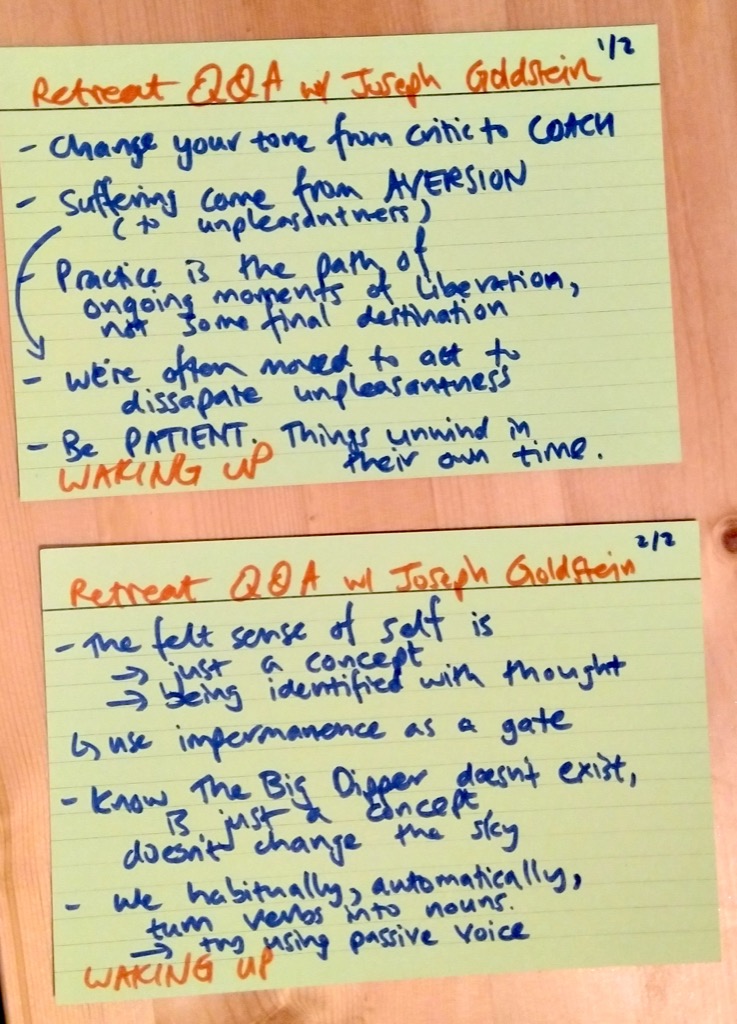 1/2
Retreat Q&A w/ Joseph Goldstein
- Change your tone from critic to COACH
- Suffering come from AVERSION
(to unpleasantness)
- Practice is the path of
ongoing moments of liberation,
not some final destination
- We're often moved to act to
dissapate unpleasantness
- Be PATIENT. Things unwind in
their own time.
WAKING UP
2/2
Retreat Q&A w/ Joseph Goldstein
- The felt sense of self is
→ just a concept
→ being identified with thought
↳ use impermanence as a gate
- Know The Big Dipper doesn't exist,
is just a concept
doesn't change the sky
- We habitually, automatically,
turn verbs into nouns.
→ try using passive voice
WAKING UP